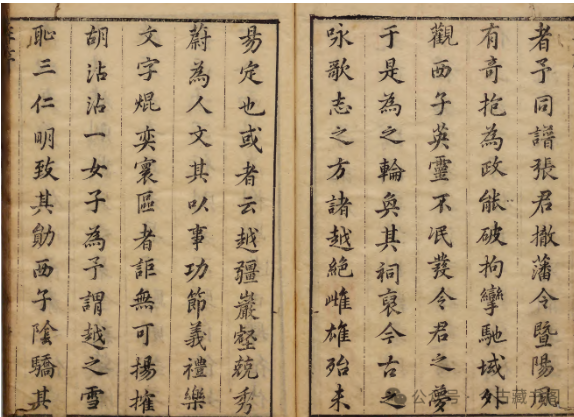 者予同譜張君撤藩令暨陽風
有奇抱為政能破拘攣馳域外
觀西子英靈不泯發令君之夢
于是為之輪奐其祠裒今古之
咏歌志之方諸越絕雌雄殆未
易定也或者云越疆巖壑兢秀
蔚為人文其以事功節義禮樂
文字焜奕寰區者詎無可揚搉
胡沾沾一女子為予謂越之雪
恥三仁明致其勛西子陰驕其
公众号
古藏